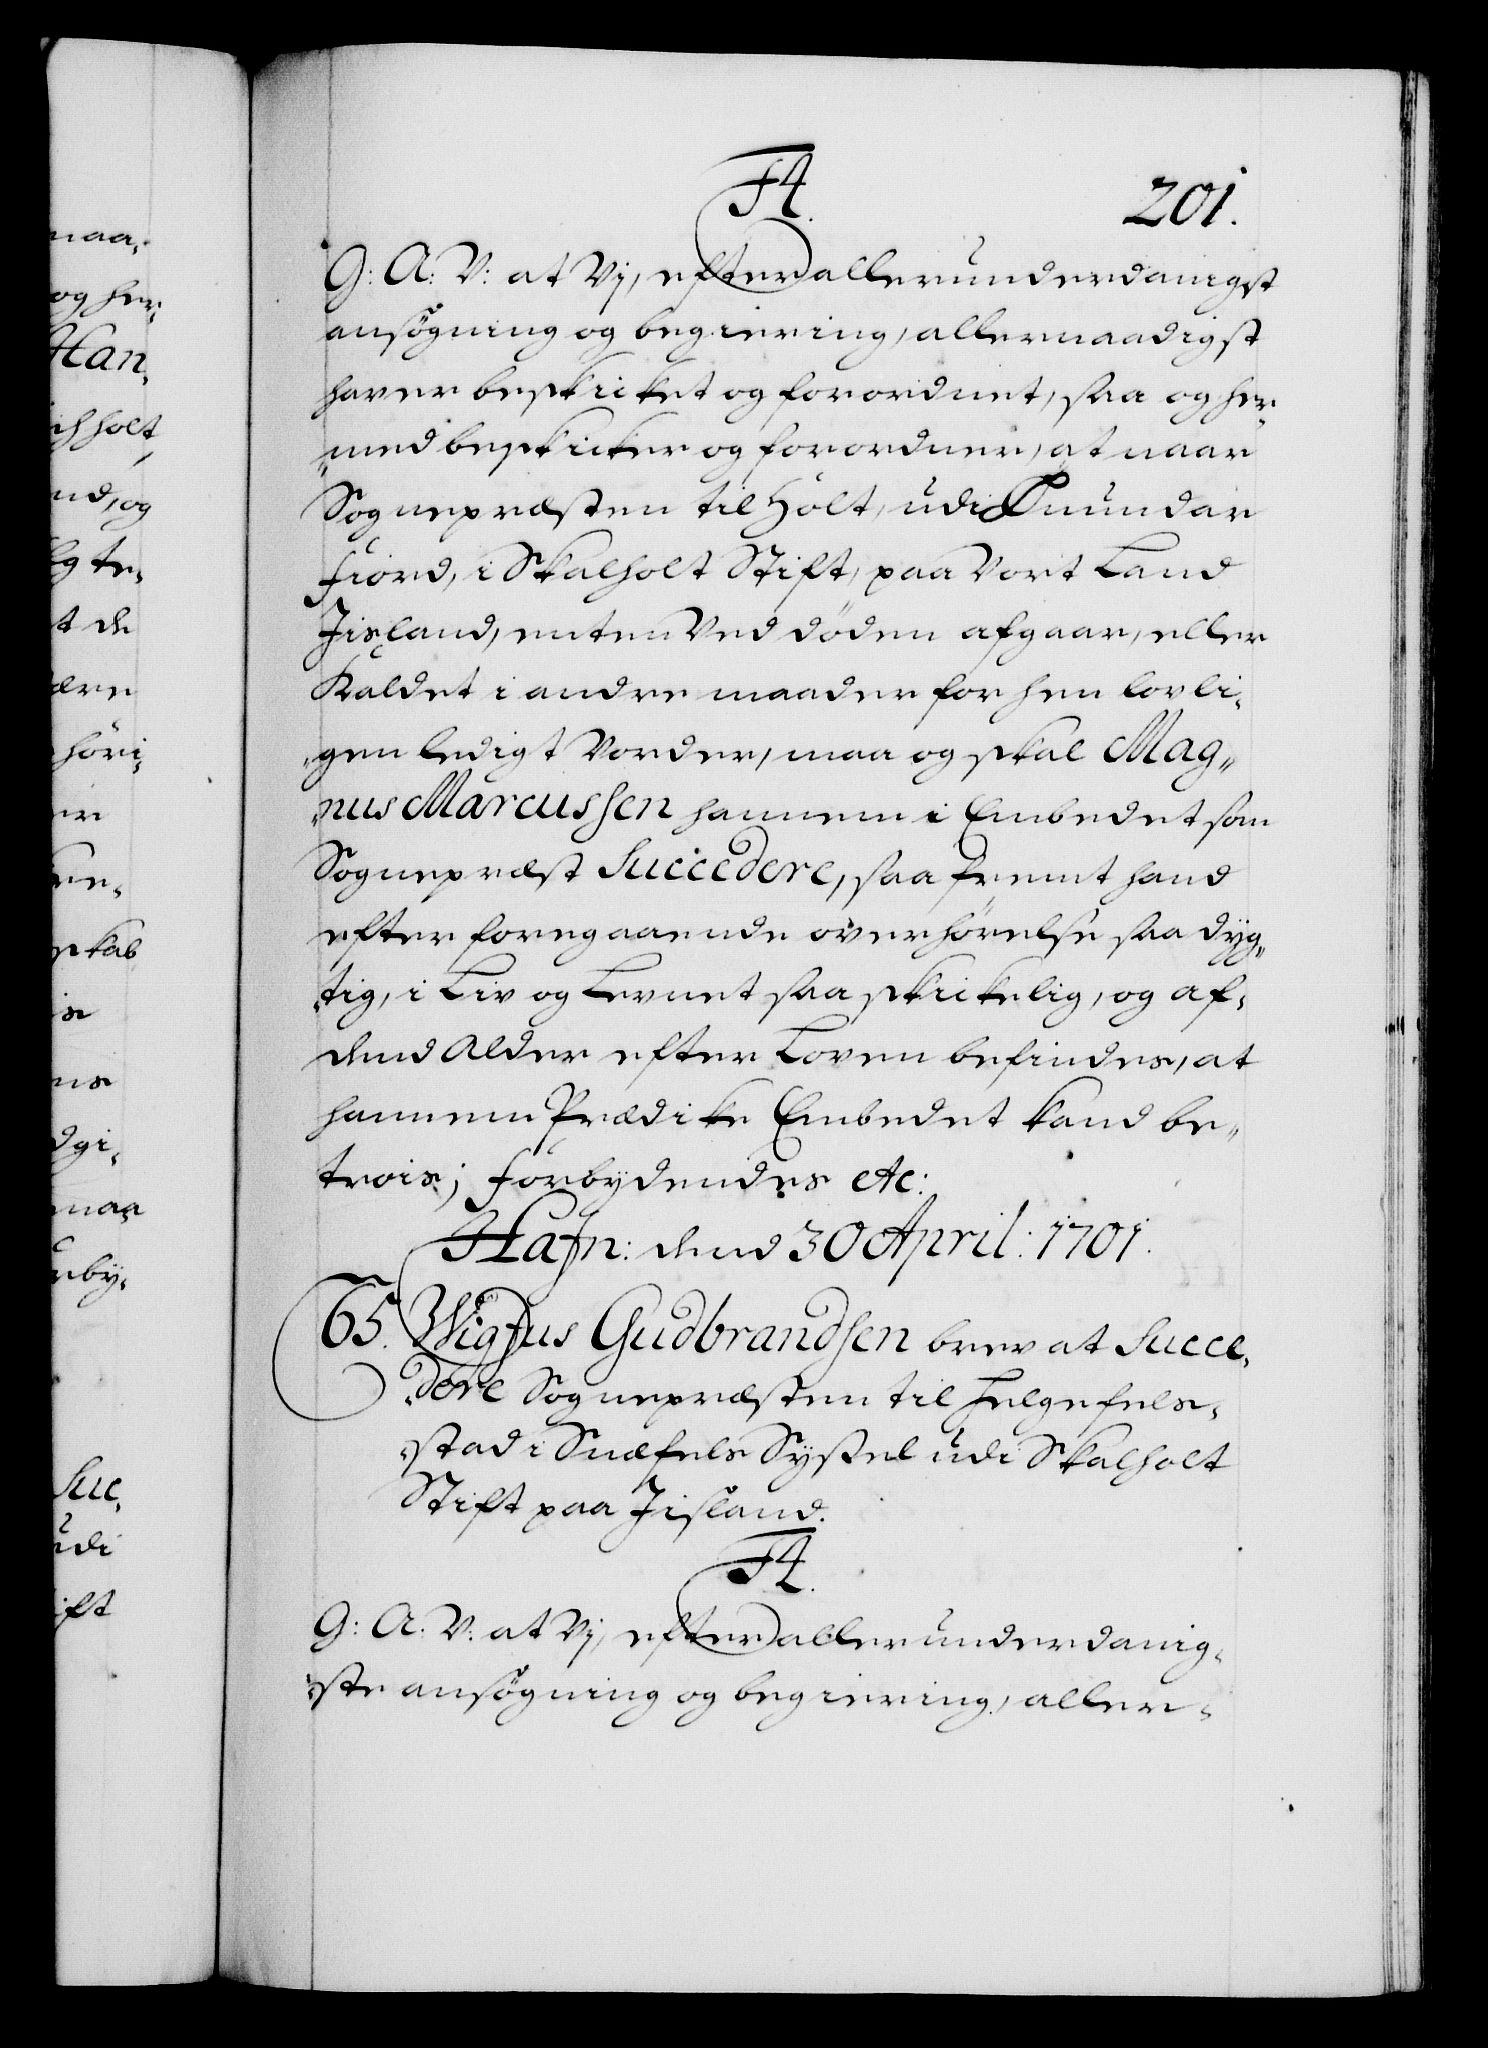 F4.
201.
G: A: V: at Vj, efter allerunderdanigst
ansøgning og begiering, allernaadigst
haver beskicket og forordnet, saa og her„
„med beskicker og forordner, at naar
Sognepræsten til Holt, udi Onundar
fiord, i Skalholt Stift, paa Vort Land
Jisland, enten Ved døden afgaar, eller
Kaldet i andre maader for hen lovli„
„gen ledigt Vorder, maa og skal Mag„
„nus Marcussen hannem i Embedet som
Sognepræst Succedere, saa fremt hand
efter foregaaende overhørelse saa dyg„
„tig, i Liv og Levnet saa skickelig, og af„
dend Alder efter Loven befindes, at
hannem Prædike Embedet kand be„
trois; forbydendes etc:
Hafn: dend 30 April: 1701.
65. Wigfus Gudbrandsen brev at Succe„
„dere Sognepræsten til Helgefels„
„stad i Snæfels Syssel udi Skalholt
Stift paa Jisland.
F4.
G: A. V: at Vj, efter allerunderdanig„
„ste ansøgning og begiering, aller„
naa„
og her„
Han„
ch holt,
nd, og
te„
t de
ære
høri„
skab
maa
rby„
Suc„
udi
ift